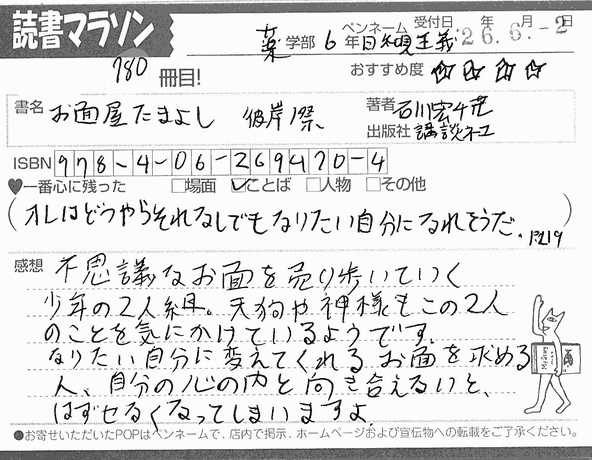 読書マラソン
780 冊目!
薬 学部 6 年 ペンネーム 日和見主義 受付日 '26.6.-2 年 月 日
おすすめ度 ☆☆☆☆
書名 お面屋たまよし 彼岸ノ祭
著者 石川宏千花
出版社 講談社
ISBN 978-4-06-269470-4
♥一番心に残った □場面 ☑ことば □人物 □その他
(オレはどうやらそれなしでもなりたい自分になれそうだ。P.219)
感想 不思議なお面を売り歩いていく
少年の2人組。天狗や神様もこの2人
のことを気にかけているようです。
なりたい自分に変えてくれるお面を求める
人、自分の心の内と向き合えないと、
はずせなくなってしまいますよ。
●お寄せいただいたPOPはペンネームで、店内で掲示、ホームページおよび宣伝物への転載をご了承ください。